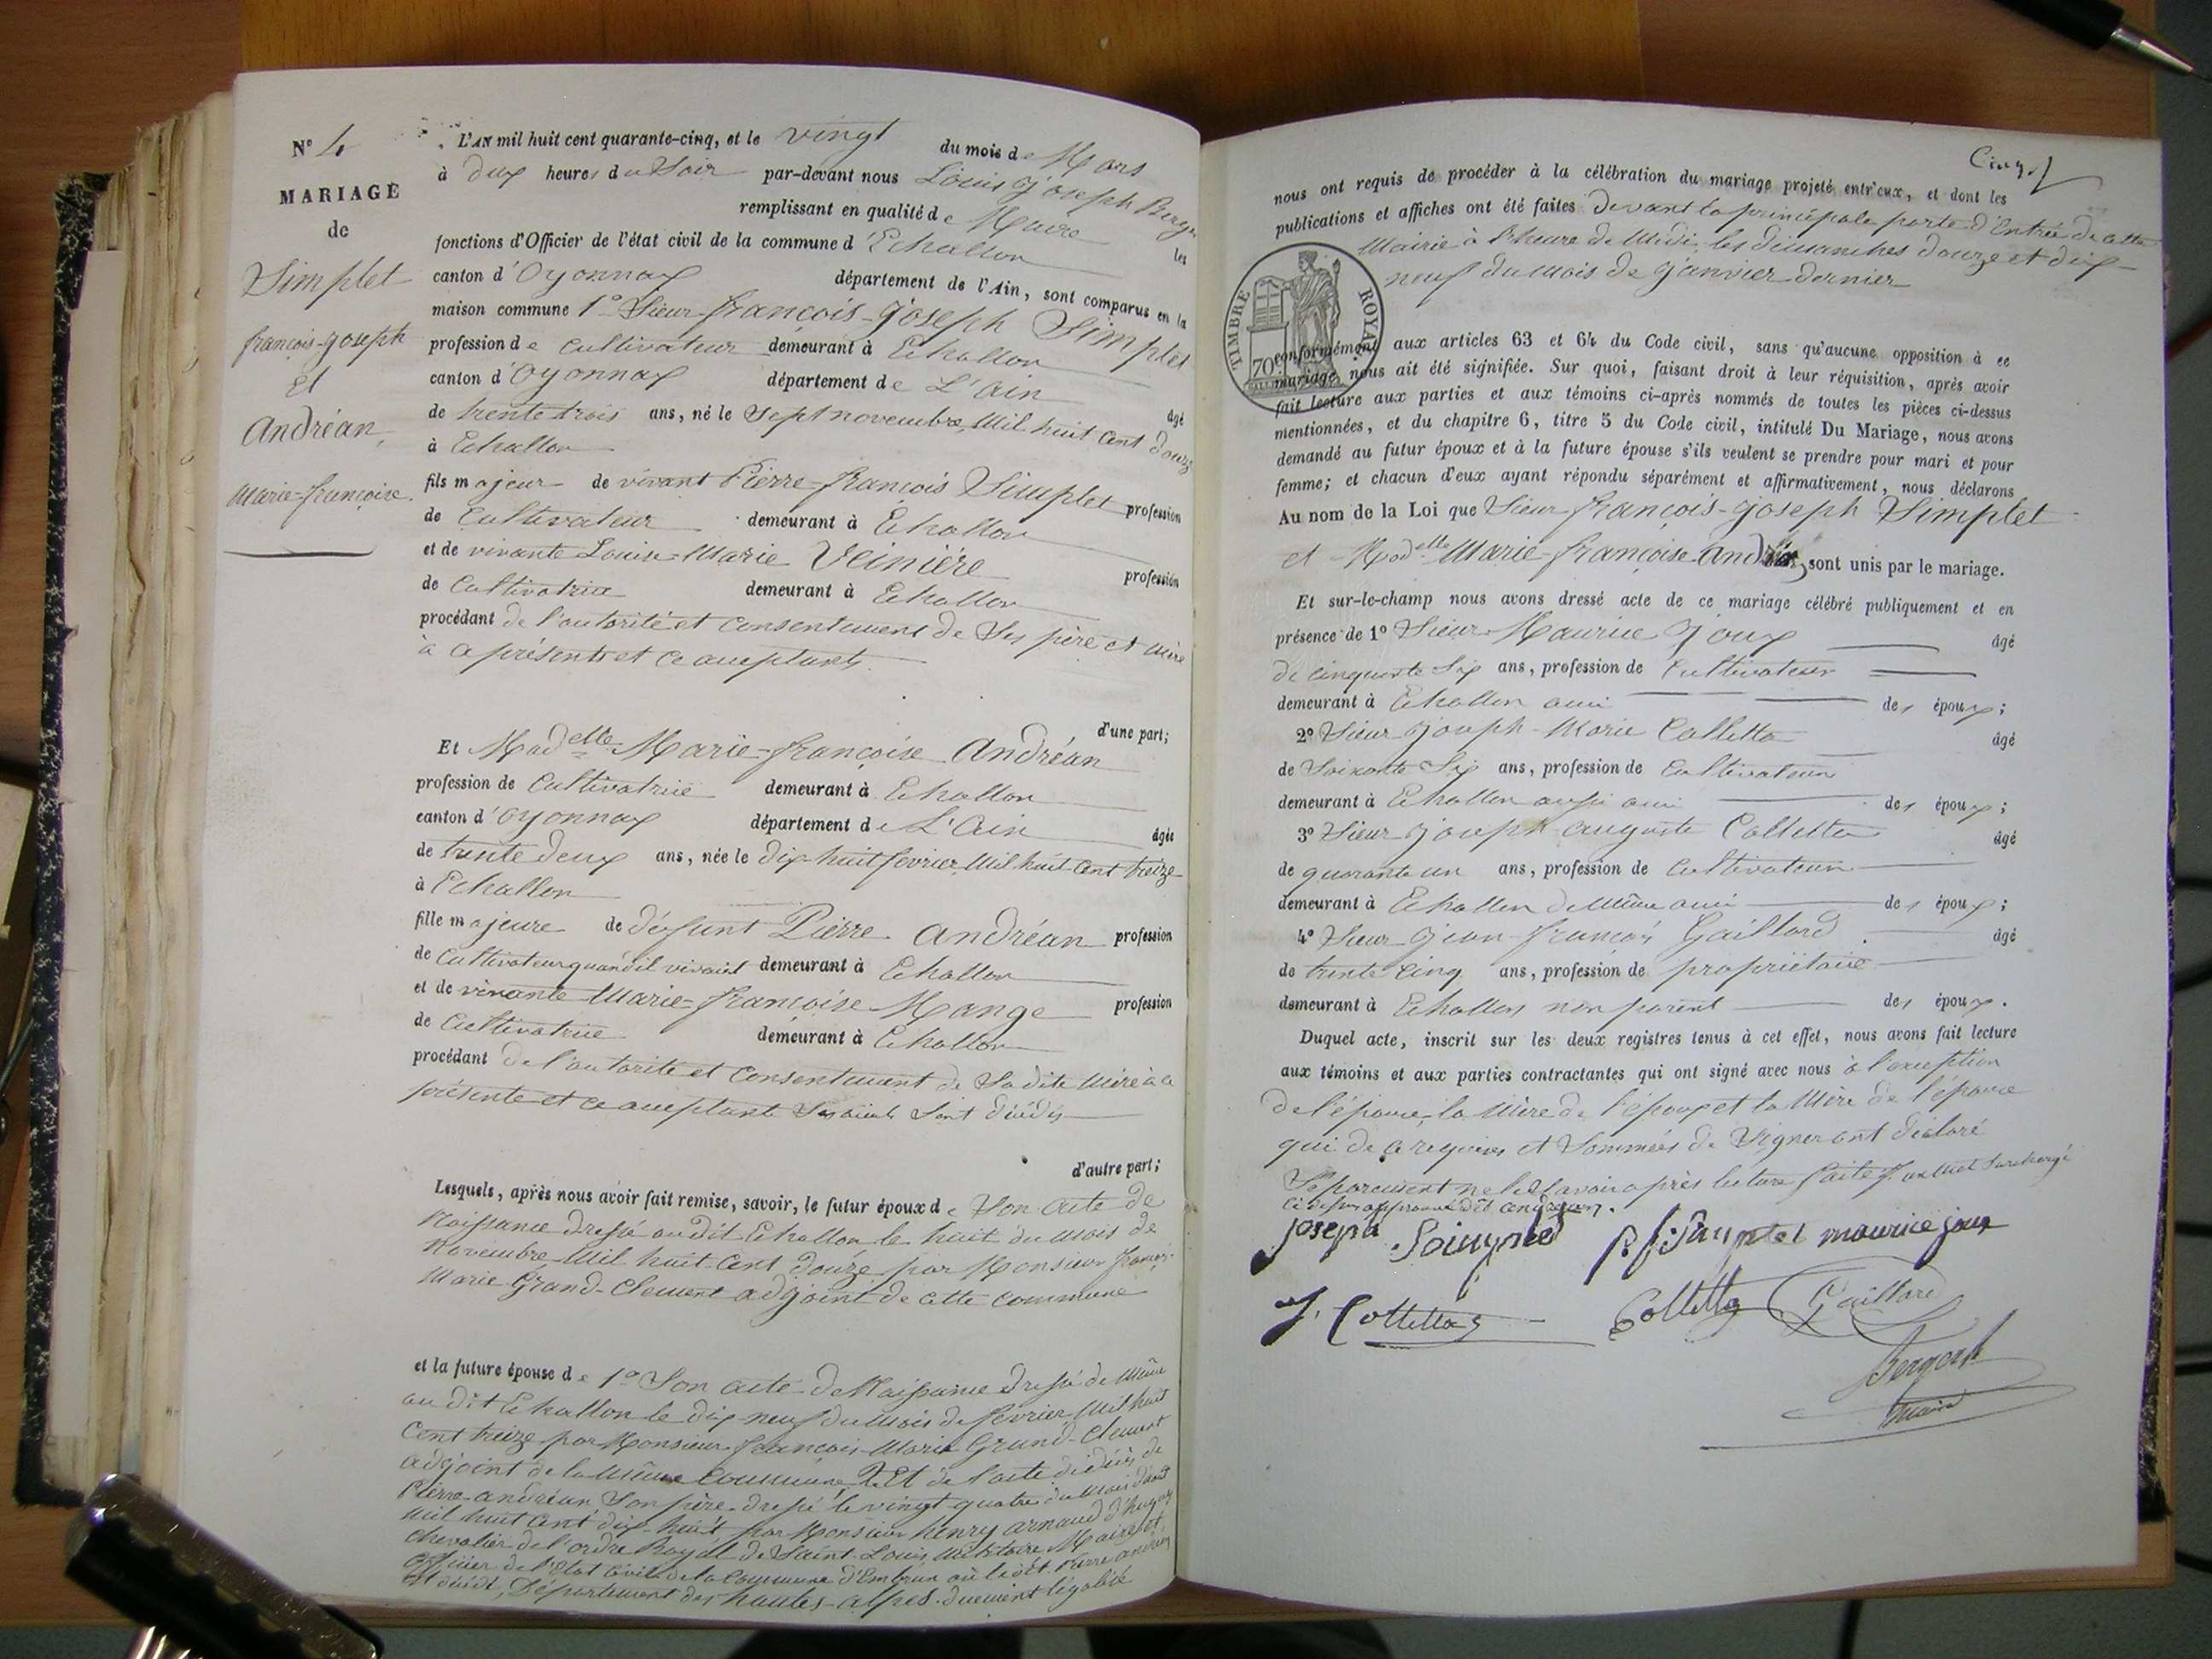 N° 4
MARIAGE
de
Simplet
françois-joseph
Et
Andréan,
Marie-françoise.
L'AN mil huit cent quarante-cinq, et le vingt du mois de Mars
à dix heures du Soir par-devant nous Louis joseph
remplissant en qualité de Maire les
fonctions d'Officier de l'état civil de la commune d'Echallon
canton d'Oyonnax département de l'Ain, sont comparus en la
maison commune 1° Sieur françois-joseph Simplet
profession de Cultivateur demeurant à Echallon
canton d'Oyonnax département de L'Ain âgé
de trente trois ans, né le Sept novembre, Mil huit Cent douze
à Echallon
fils majeur de vivant Pierre-françois Simplet profession
de Cultivateur demeurant à Echallon
et de vivante Louise-Marie profession
de Cultivatrice demeurant à Echallon
procédant de l'autorité et Consentement de Ses père et mère
à ce présents et ce acceptants.
d'une part;
Et Madelle Marie-françoise Andréan
profession de Cultivatrice demeurant à Echallon
canton d'Oyonnax département de L'Ain âgée
de trente deux ans, née le dix-huit février, Mil huit-Cent treize
à Echallon
fille majeure de défunt Pierre Andréan profession
de Cultivateur quand il vivait demeurant à Echallon
et de vivante Marie-françoise Mange profession
de Cultivatrice demeurant à Echallon
procédant de l'autorité et Consentement de Sadite Mère à ce
présente et ce acceptante Ses aieuls Sont décédés
d'autre part;
Lesquels, après nous avoir fait remise, savoir, le futur époux de Son acte de
Naissance dressé audit Echallon le huit du mois de
Novembre Mil huit Cent douze par Monsieur françois
Marie Grand-Clement adjoint de cette commune
et la future épouse de 1° Son acte de Naissance dressé de même
au dit Echallon le dix neuf du mois de février Mil huit
Cent treize par Monsieur françois-Marie Grand-Clement
adjoint de la même Commune, 2° Et de l'acte de décès de
Pierre andréan Son père dressé le vingt quatre du mois d'août
mil huit Cent dix-huit par Monsieur henry arnaud
Chevalier de l'ordre Royal de Saint-Louis, Militaire Maire et
officier de l'Etat Civil de la Commune d'Embrun où ledit Pierre andréan
est décédé, Département des hautes-alpes duement légalisé
Cinq
nous ont requis de procéder à la célébration du mariage projeté entr'eux, et dont les
publications et affiches ont été faites devant la principale porte d'Entrée de cette
Mairie à l'heure de Midi, les dimanches douze et dix-
neuf du mois de janvier dernier
TIMBRE ROYAL
70
conformément aux articles 63 et 64 du Code civil, sans qu'aucune opposition à ce
mariage nous ait été signifiée. Sur quoi, faisant droit à leur réquisition, après avoir
fait lecture aux parties et aux témoins ci-après nommés de toutes les pièces ci-dessus
mentionnées, et du chapitre 6, titre 5 du Code civil, intitulé Du Mariage, nous avons
demandé au futur époux et à la future épouse s'ils veulent se prendre pour mari et pour
femme; et chacun d'eux ayant répondu séparément et affirmativement, nous déclarons
Au nom de la Loi que Sieur françois-joseph Simplet
et Madelle Marie-françoise sont unis par le mariage.
Et sur-le-champ nous avons dressé acte de ce mariage célébré publiquement et en
présence de 1° Sieur Maurice Joux âgé
de cinquante Six ans, profession de Cultivateur
demeurant à Echallon ami des époux;
2° Sieur joseph-Marie Colletta âgé
de Soixante Six ans, profession de Cultivateur
demeurant à Echallon aussi ami des époux;
3° Sieur joseph-auguste Colletta âgé
de quarante un ans, profession de Cultivateur
demeurant à Echallon de même ami des époux;
4° Sieur jean-françois Gaillard âgé
de trente Cinq ans, profession de propriétaire
demeurant à Echallon non parent des époux.
Duquel acte, inscrit sur les deux registres tenus à cet effet, nous avons fait lecture
aux témoins et aux parties contractantes qui ont signé avec nous à l'exception
de l'épouse, la Mère de l'époux et la Mère de l'épouse
qui de ce requises et Sommées de Signer ont déclaré
Séparément ne le Savoir après lecture faite
andréan.
joseph maurice joux
J. Colletta Colletta Gaillard
maire